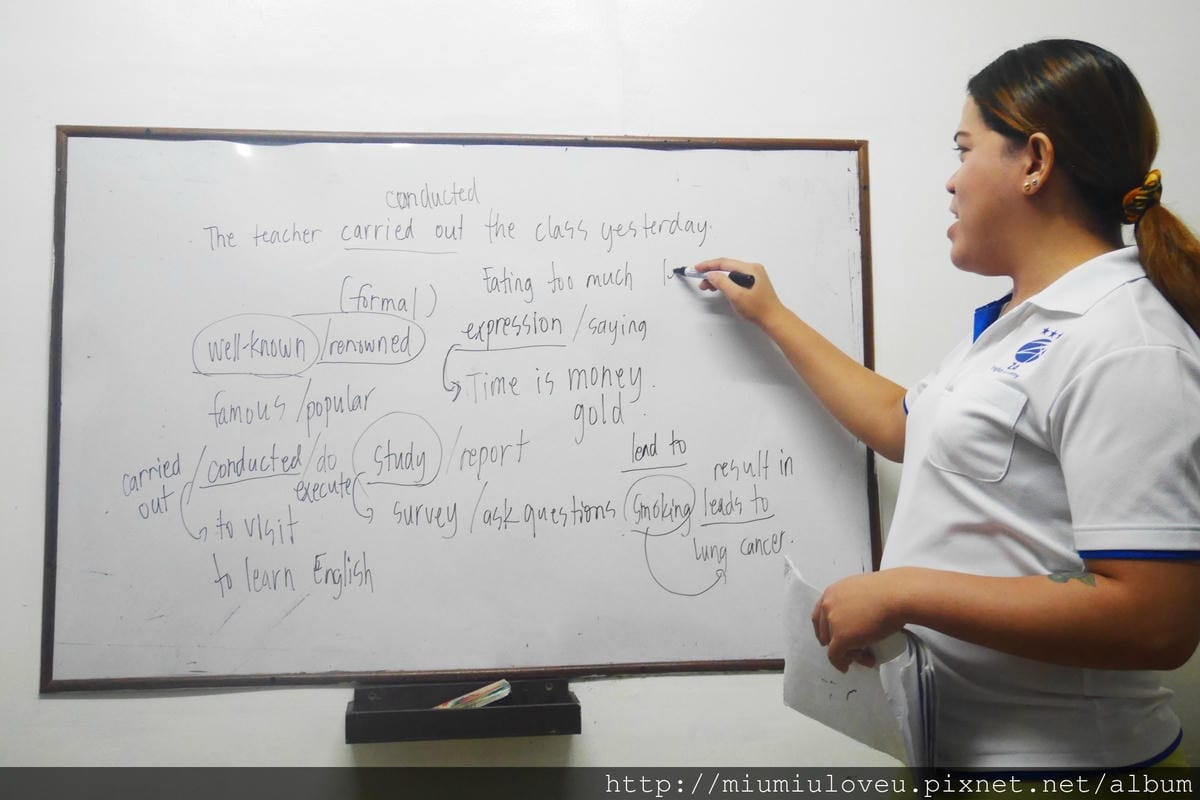 conducted
The teacher carried out the class yesterday.
Eating too much
(formal)
well-known/renowned
expression/saying
famous/popular
Time is money.
gold.
carried out/conducted/do
execute
study/report
lead to
result in
survey/ask questions
smoking leads to
lung cancer.
to visit
to learn English
http://miumiuloveu.pixnet.net/album